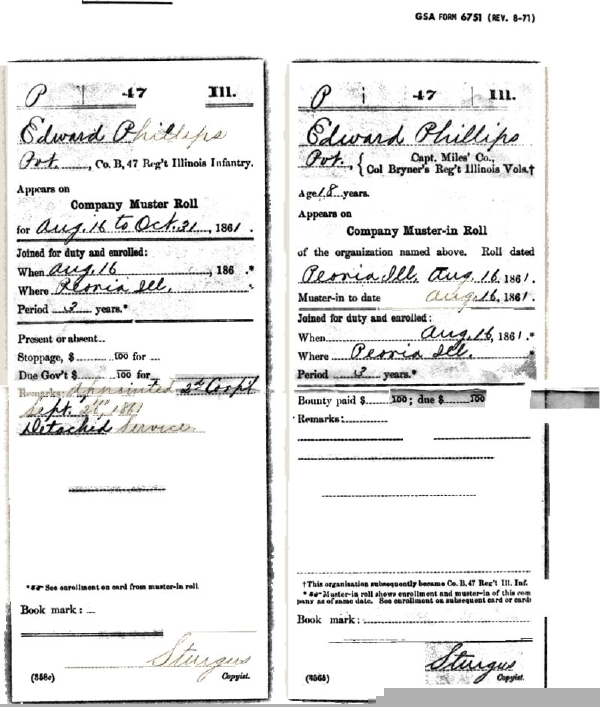 GSA FORM 6751 (REV. 8-71)
P 47 Ill.
Edward Phillips
Pvt., Co. B, 47 Reg't Illinois Infantry.
Appears on
Company Muster Roll
for Aug. 16 to Oct. 31, 1861.
Joined for duty and enrolled:
When Aug. 16, 186 .*
Where Peoria Ill.
Period 3 years.*
Present or absent
Stoppage, $ 100 for
Due Gov't $ 100 for
Remarks: Appointed 2d Corp'l
Sept. 1861
Detached Service.
* See enrollment on card from muster-in roll.
Book mark:
Sturgus
(358c) Copyist.
P 47 Ill.
Edward Phillips
Pvt., { Capt. Miles' Co.,
Col Bryner's Reg't Illinois Vols.†
Age 18 years.
Appears on
Company Muster-in Roll
of the organization named above. Roll dated
Peoria Ill. Aug. 16, 1861.
Muster-in to date Aug. 16, 1861.
Joined for duty and enrolled:
When Aug. 16, 1861.*
Where Peoria Ill.
Period 3 years.*
Bounty paid $ 100; due $ 100
Remarks:
†This organization subsequently became Co. B, 47 Reg't Ill. Inf.
* Muster-in roll shows enrollment and muster-in of this com
pany as of same date. See enrollment on subsequent card or cards
Book mark:
Sturgus
(356) Copyist.